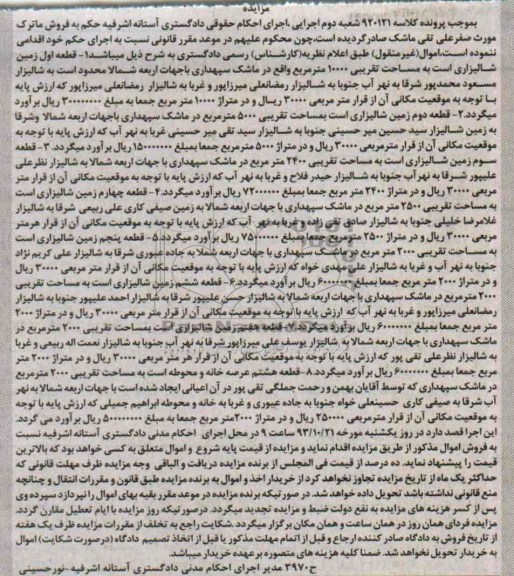 مزایده
بموجب پرونده کلاسه ۹۲۰۱۲۱ شعبه دوم اجرایی ،اجرای احکام حقوقی دادگستری آستانه اشرفیه حکم به فروش ماترک
مورث صفرعلی تقی ماشک صادر گردیده است،چون محکوم علیهم در موعد مقرر قانونی نسبت به اجرای حکم خود اقدامی
ننموده است،اموال(غیرمنقول) طبق اعلام نظریه(کارشناس) رسمی دادگستری به شرح ذیل میباشد۱- قطعه اول زمین
شالیزاری است به مساحت تقریبی ۱۰۰۰۰ مترمربع واقع در ماشک سپهداری باجهات اربعه شمالا محدود است به شالیزار
مسعود محمدپور شرقا به نهر آب جنوبا به شالیزار رمضانعلی میرزاپور و غربا به شالیزار رمضانعلی میرزاپور که ارزش پایه
با توجه به موقعیت مکانی آن از قرار متر مربعی ۳۰۰۰۰ ریال و در متراژ ۱۰۰۰۰ متر مربع جمعا به مبلغ ۳۰۰۰۰۰۰۰۰ ریال برآورد
میگردد.۲- قطعه دوم زمین شالیزاری است بمساحت تقریبی ۵۰۰۰ مترمربع در ماشک سپهداری باجهات اربعه شمالا وشرقا
به زمین شالیزار سید حسین میر حسینی جنوبا به شالیزار سید تقی میر حسینی غربا به نهر آب که ارزش پایه با توجه به
موقعیت مکانی آن از قرار مترمربعی ۳۰۰۰۰ ریال و در متراژ ۵۰۰۰ مترمربع جمعا بمبلغ ۱۵۰۰۰۰۰۰۰ ریال برآورد میگردد. ۳- قطعه
سوم زمین شالیزاری است به مساحت تقریبی ۲۴۰۰ متر مربع در ماشک سپهداری با جهات اربعه شمالا به شالیزار نظرعلی
علیپور شرقا به نهر آب جنوبا به شالیزار حیدر فلاح و غربا به نهر آب که ارزش پایه با توجه به موقعیت مکانی آن از قرار متر
مربعی ۳۰۰۰۰ ریال و در متراژ ۲۴۰۰ متر مربع جمعا بمبلغ ۷۲۰۰۰۰۰۰ ریال برآورد میگردد.۴- قطعه چهارم زمین شالیزاری است
به مساحت تقریبی ۲۵۰۰ متر مربع در ماشک سپهداری با جهات اربعه شمالا به زمین صیفی کاری علی ربیعی شرقا به شالیزار
غلامرضا خلیلی جنوبا به شالیزار صادق تقی زاده و غربا به نهر آب که ارزش پایه با توجه به موقعیت مکانی آن از قرار هرمتر
مربعی ۳۰۰۰۰ ریال و در متراژ ۲۵۰۰ مترمربع جمعا بمبلغ ۷۵۰۰۰۰۰۰ ریال برآورد میگردد.۵- قطعه پنجم زمین شالیزاری است
به مساحت تقریبی ۲۰۰۰ متر مربع در ماشک سپهداری با جهات اربعه شمالا به جاده عبوری شرقا به شالیزار علی کریم نژاد
جنوبا به نهر آب و غربا به شالیزار علی مهدی خواه که ارزش پایه با توجه به موقعیت مکانی آن از قرار متر مربعی ۳۰۰۰۰ ریال
و در متراژ ۲۰۰۰ متر مربع جمعا بمبلغ ۶۰۰۰۰۰۰۰ ریال برآورد میگردد.۶- قطعه ششم زمین شالیزاری است به مساحت تقریبی
۲۰۰۰ مترمربع در ماشک سپهداری با جهات اربعه شمالا به شالیزار حسن علیپور شرقا به شالیزار احمد علیپور جنوبا به شالیزار
رمضانعلی میرزاپور و غربا به نهر آب که ارزش پایه با توجه به موقعیت مکانی آن از قرار متر مربعی ۳۰۰۰۰ ریال و در متراژ ۲۰۰۰
متر مربع جمعا بمبلغ ۶۰۰۰۰۰۰۰ ریال برآورد میگردد.۷- قطعه هفتم زمین شالیزاری است بمساحت تقریبی ۲۰۰۰ مترمربع در
ماشک سپهداری باجهات اربعه شمالا به شالیزار یوسف علی میرزاپور شرقا به نهر آب جنوبا به شالیزار نعمت اله ربیعی و غربا
به شالیزار نظرعلی تقی پور که ارزش پایه با توجه به موقعیت مکانی آن از قرار متر مربعی ۳۰۰۰۰ ریال و در متراژ ۲۰۰۰ متر
مربع جمعا بمبلغ ۶۰۰۰۰۰۰۰ ریال برآورد میگردد.۸- قطعه هشتم عرصه خانه و محوطه است به مساحت تقریبی ۲۰۰۰مترمربع
در ماشک سپهداری که توسط آقایان بهمن و رحمت جملگی تقی پور در آن اعیانی ایجاد شده است با جهات اربعه شمالا به نهر
آب شرقا به صیفی کاری حسینعلی خواه جنوبا به جاده عبوری و غربا به خانه و محوطه ابراهیم جمیلی که ارزش پایه با توجه
به موقعیت مکانی آن از قرار مترمربعی ۲۵۰۰۰۰ ریال و در متراژ ۲۰۰۰متر مربع جمعا به مبلغ ۵۰۰۰۰۰۰۰۰ ریال برآورد می گردد.
این اجرا قصد دارد در روز یکشنبه مورخه ۹۳/۱۰/۲۱ ساعت ۹ در محل اجرای احکام مدنی دادگستری آستانه اشرفیه نسبت
به فروش اموال مذکور از طریق مزایده اقدام نماید و مزایده از قیمت پایه شروع و اموال متعلق به کسی خواهد بود که بالاترین
قیمت را پیشنهاد نماید. ده درصد از قیمت فی المجلس از برنده مزایده دریافت و الباقی وجه مزایده ظرف مهلت قانونی که
حداکثر یک ماه از تاریخ مزایده تجاوز نخواهد کرد از خریدار اخذ و اموال به برنده مزایده طبق قانون و مقررات انتقال و چنانچه
منع قانونی نداشته باشد تحویل داده خواهد شد. در صورتیکه برنده مزایده در موعد مقرر بقیه بهای اموال را نپردازد سپرده وی
پس از کسر هزینه های مزایده به نفع دولت ضبط و مزایده تجدید میگردد. درصورتیکه روز مزایده با ایام تعطیل مقارن گردد.
مزایده فردای همان روز در همان ساعت و همان مکان برگزار میگردد .شکایت راجع به تخلف از مقررات مزایده ظرف یک هفته
از تاریخ فروش به دادگاه صادر کننده ارجاع و قبل از اتمام مهلت مذکور یا قبل از اتخاذ تصمیم دادگاه (درصورت شکایت) اموال
به خریدار تحویل نخواهد شد. ضمنا کلیه هزینه های متصوره برعهده خریدار میباشد.
ح۳۹۷۰ مدیر اجرای احکام مدنی دادگستری آستانه اشرفیه -نورحسینی